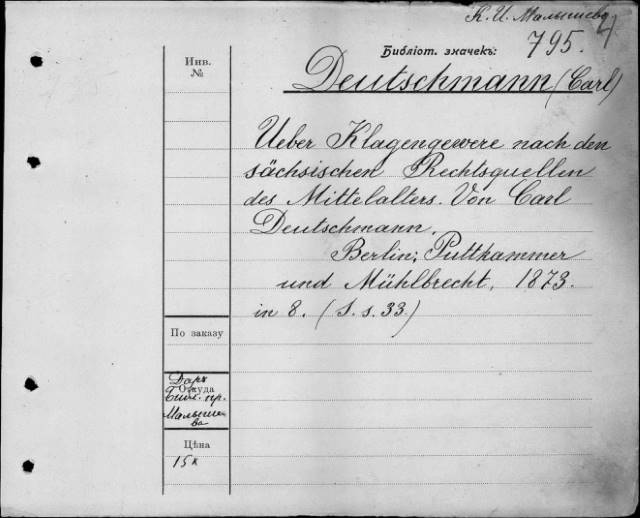 К. И. Малышева
4
Библіот. значекъ: 795.
Deutschmann (Carl)
Инв.
№
Ueber Klagengewere nach den
sächsischen Rechtsquellen
des Mittelalters. Von Carl
Deutschmann.
Berlin, Puttkammer
und Mühlbrecht, 1873.
in 8. (S. s. 33.)
По заказу
Даръ
Откуда
Библ. пр.
Малыше-
ва
Цѣна
15 к